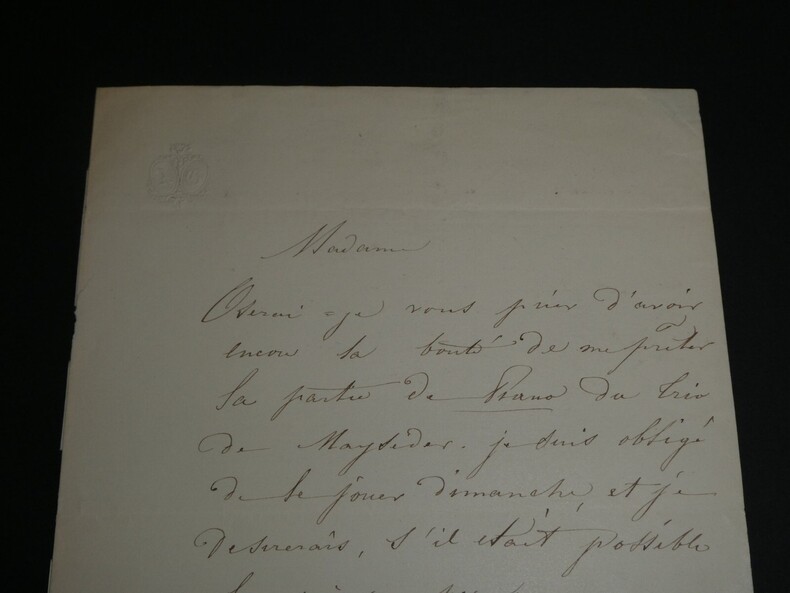 Madame
Oserai=je vous prier d'avoir
encore la bonté de me prêter
la partie de Piano du trio
de Mayseder. je suis obligé
de le jouer dimanche, et je
desirerais, s'il était possible